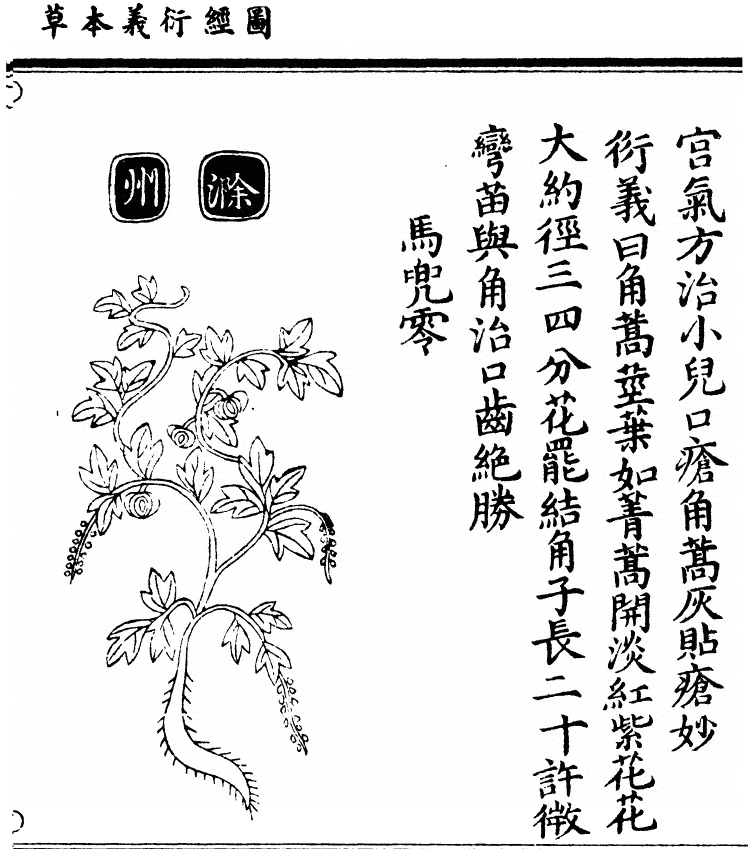 圖經衍義本草
宫氣方治小兒口瘡角蒿灰貼瘡妙
衍義曰角蒿莖葉如菁蒿開淡紅紫花花
大約徑三四分花罷結角子長二十許微
彎苗與角治口齒絶勝
馬兜零
滁州